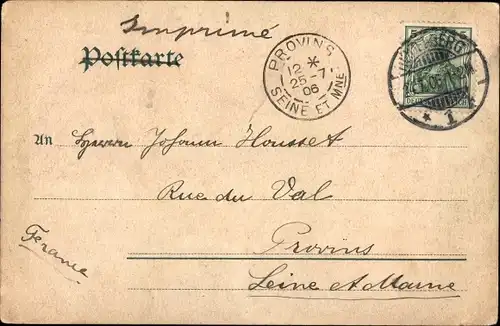 Imprimé
Postkarte
PROVINS
*
12
25 -7
06
SEINE ET MNE
5
* 1
An Herrn Johann Housset
Rue du Val
Provins
Seine et Marne
France